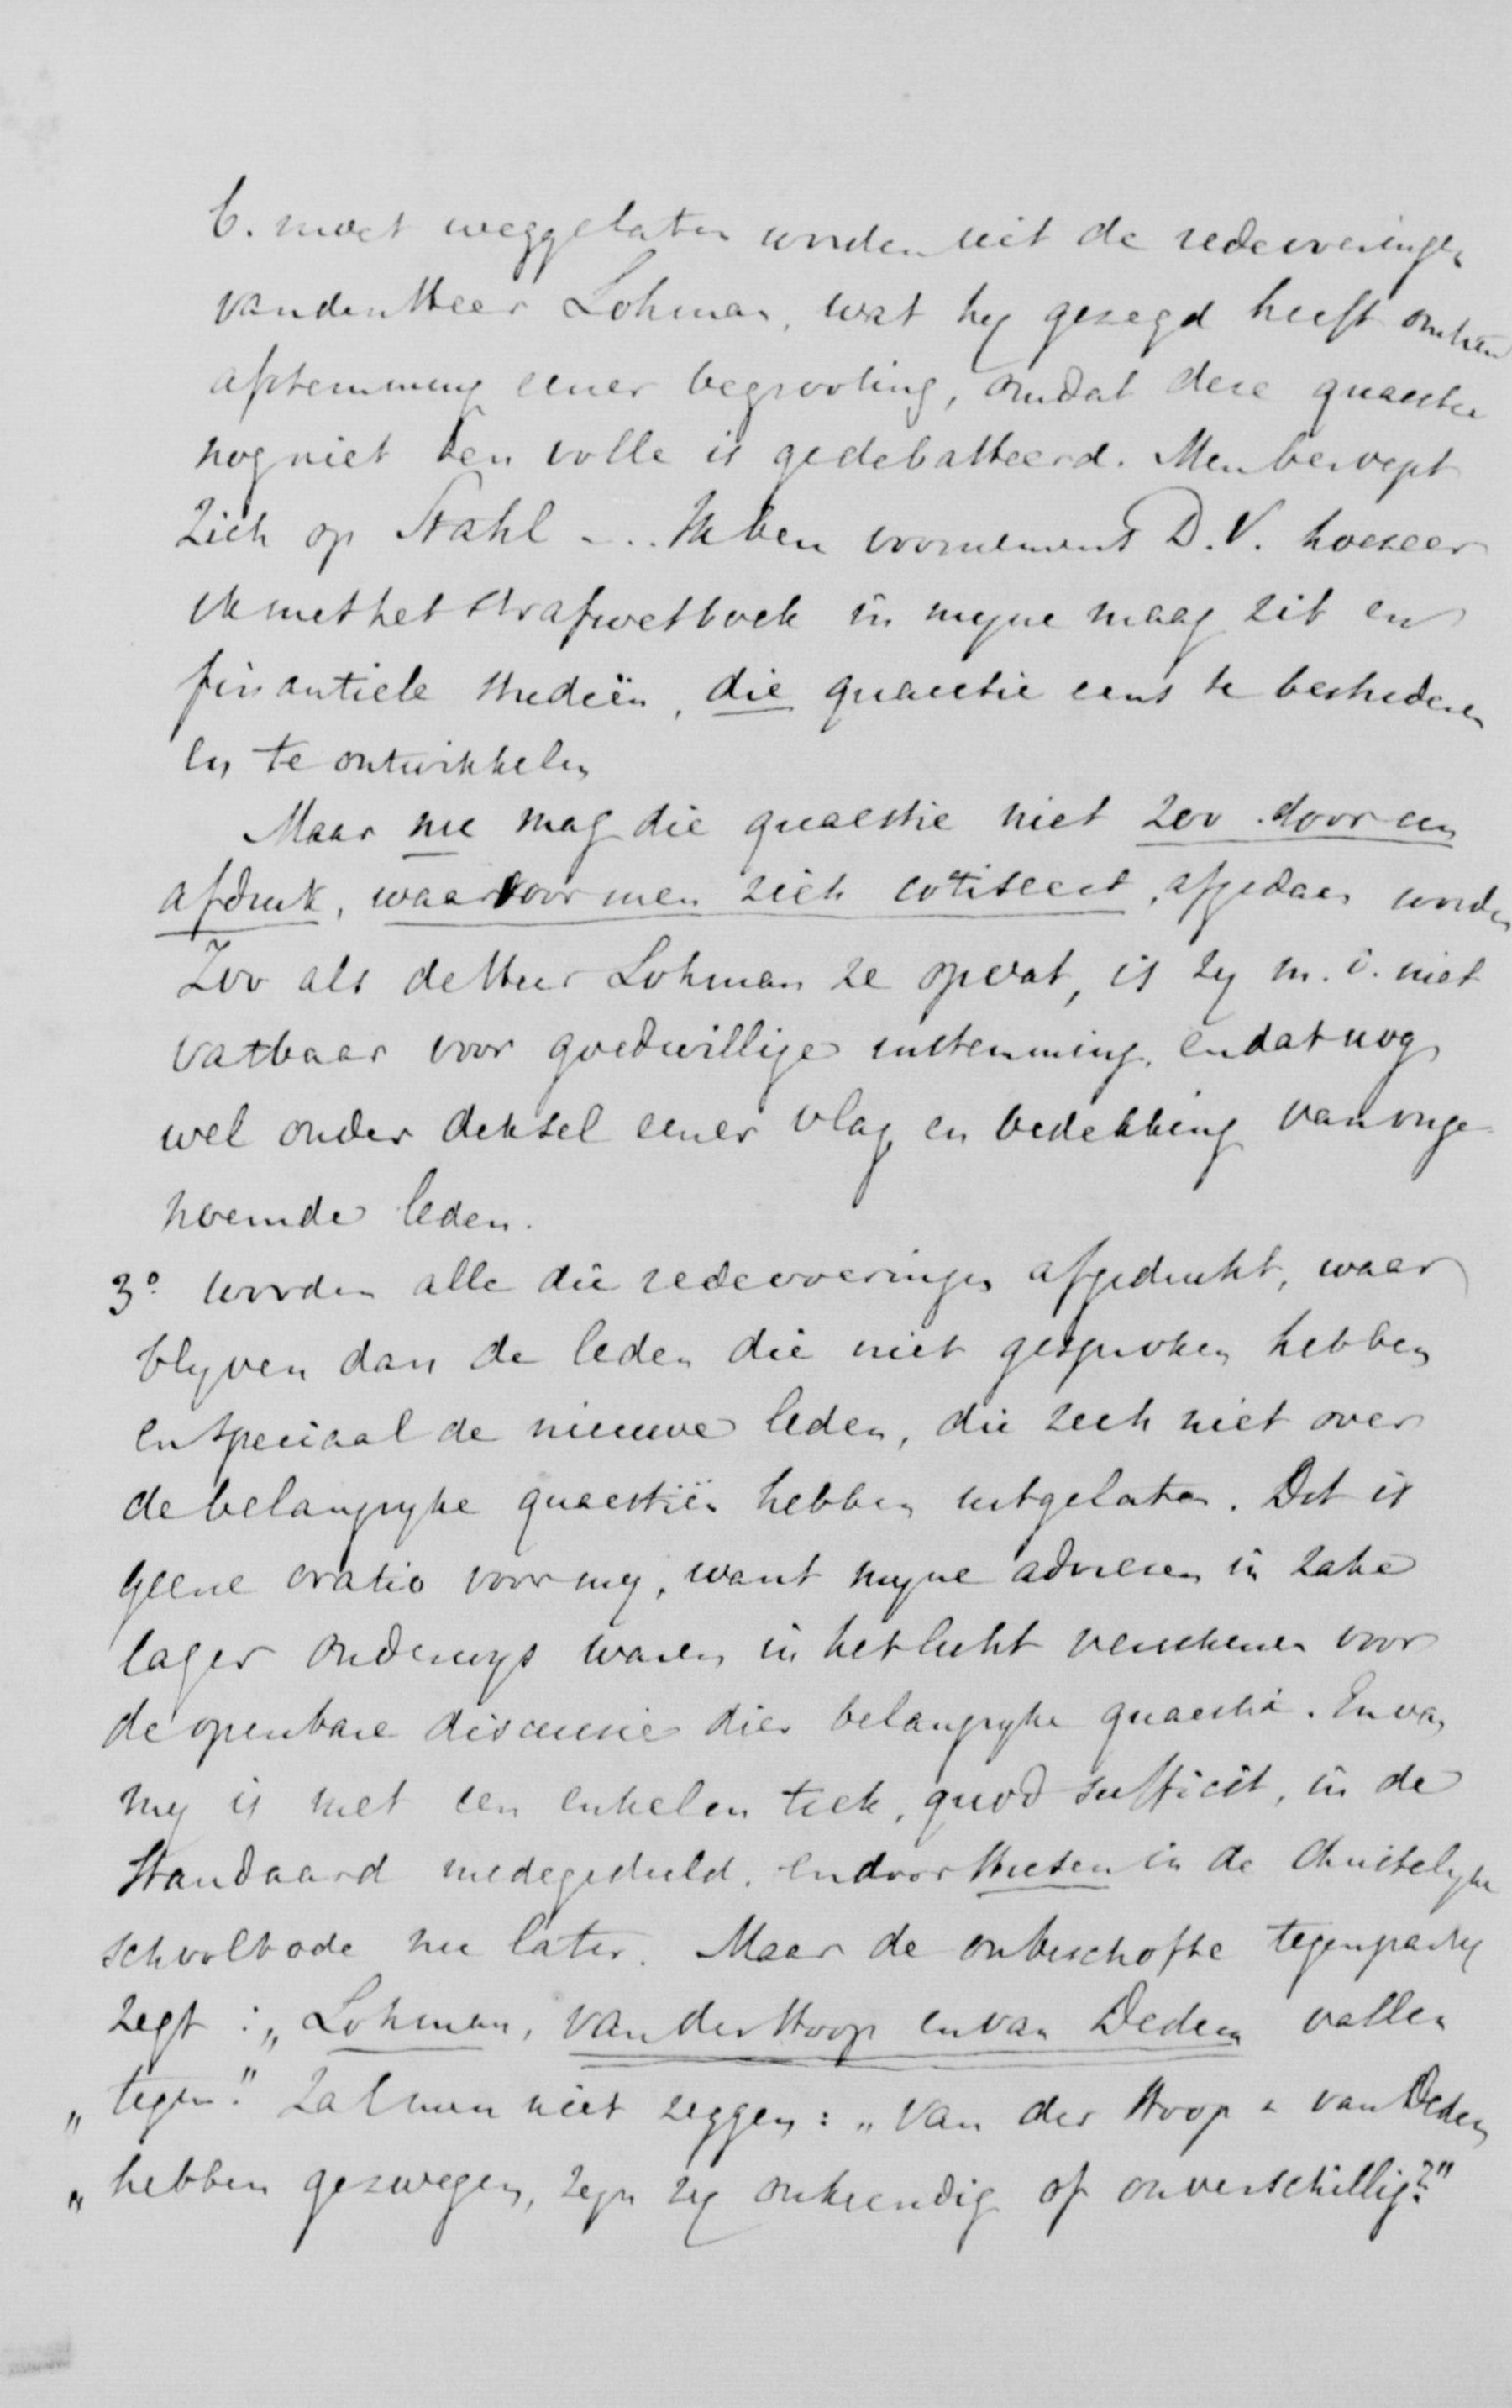 C. moet weggelaten worden uit de redevoeringen
van den Heer Lohman, wat hy gezegd heeft omtrent
afstemming eener begrooting, omdat deze quaestie
nog niet ten volle is gedebatteerd. Men beroept
zich op Stahl ... Ik ben voornemens D.V. hoezeer
ik met het strafwetboek in myne maag zit en
finantiele studiën, die quaestie eens te bestuderen
en te ontwikkelen
Maar nu mag die quaestie niet zoo door een
afdruk, waarvoor men zich cotiseert, afgedaan worden
Zoo als de Heer Lohman ze opvat, is zy m. i. niet
vatbaar voor goedwillige instemming, en dat nog
wel onder deksel eener vlag en bedekking van onge-
noemde leden.
3º worden alle die redevoeringen afgedrukt, waar
blyven dan de leden die niet gesproken hebben
en speciaal de nieuwe leden, die zich niet over
de belangryke quaestiën hebben uitgelaten. Dit is
geene oratio voor my, want myne adviezen in zake
lager onderwys waren in het licht verschenen voor
de openbare discussie dier belangryke quaestie. En van
my is met een enkelen trek, quod sufficit, in de
Standaard medegedeeld, en door in de Christelyke
schoolbode nu later. Maar de onbeschofte tegenparty
zegt: „Lohman, van der Hoop en van Dedem vallen
„tegen." Zal men niet zeggen: „Van der Hoop & van Dedem
„hebben gezwegen, zyn zy onkundig of onverschillig?"